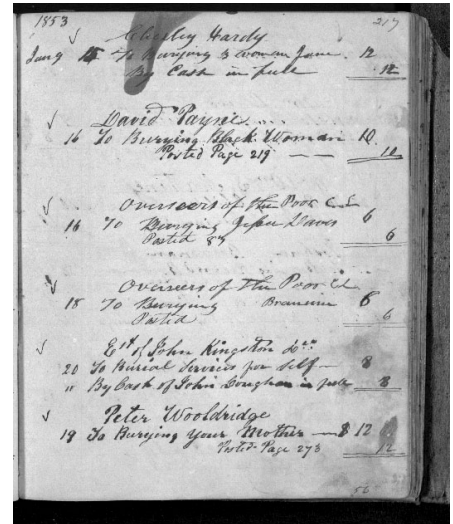 1853 217
Chesley Hardy
Jany 15 To Burying B Woman Jane 12
By Cash in full 12
David Payne
16 To Burying Black Woman 10
Posted Page 219 10
Overseers of the Poor
16 To Burying Jesse Davis 6
Posted 6
Overseers of the Poor
18 To Burying 6
Posted 6
Est of John Kingston
20 To Burial Services for Self 8
" By Cash of John in full 8
Peter Wooldridge
19 To Burying Your Mother $ 12
Posted Page 273 12
56